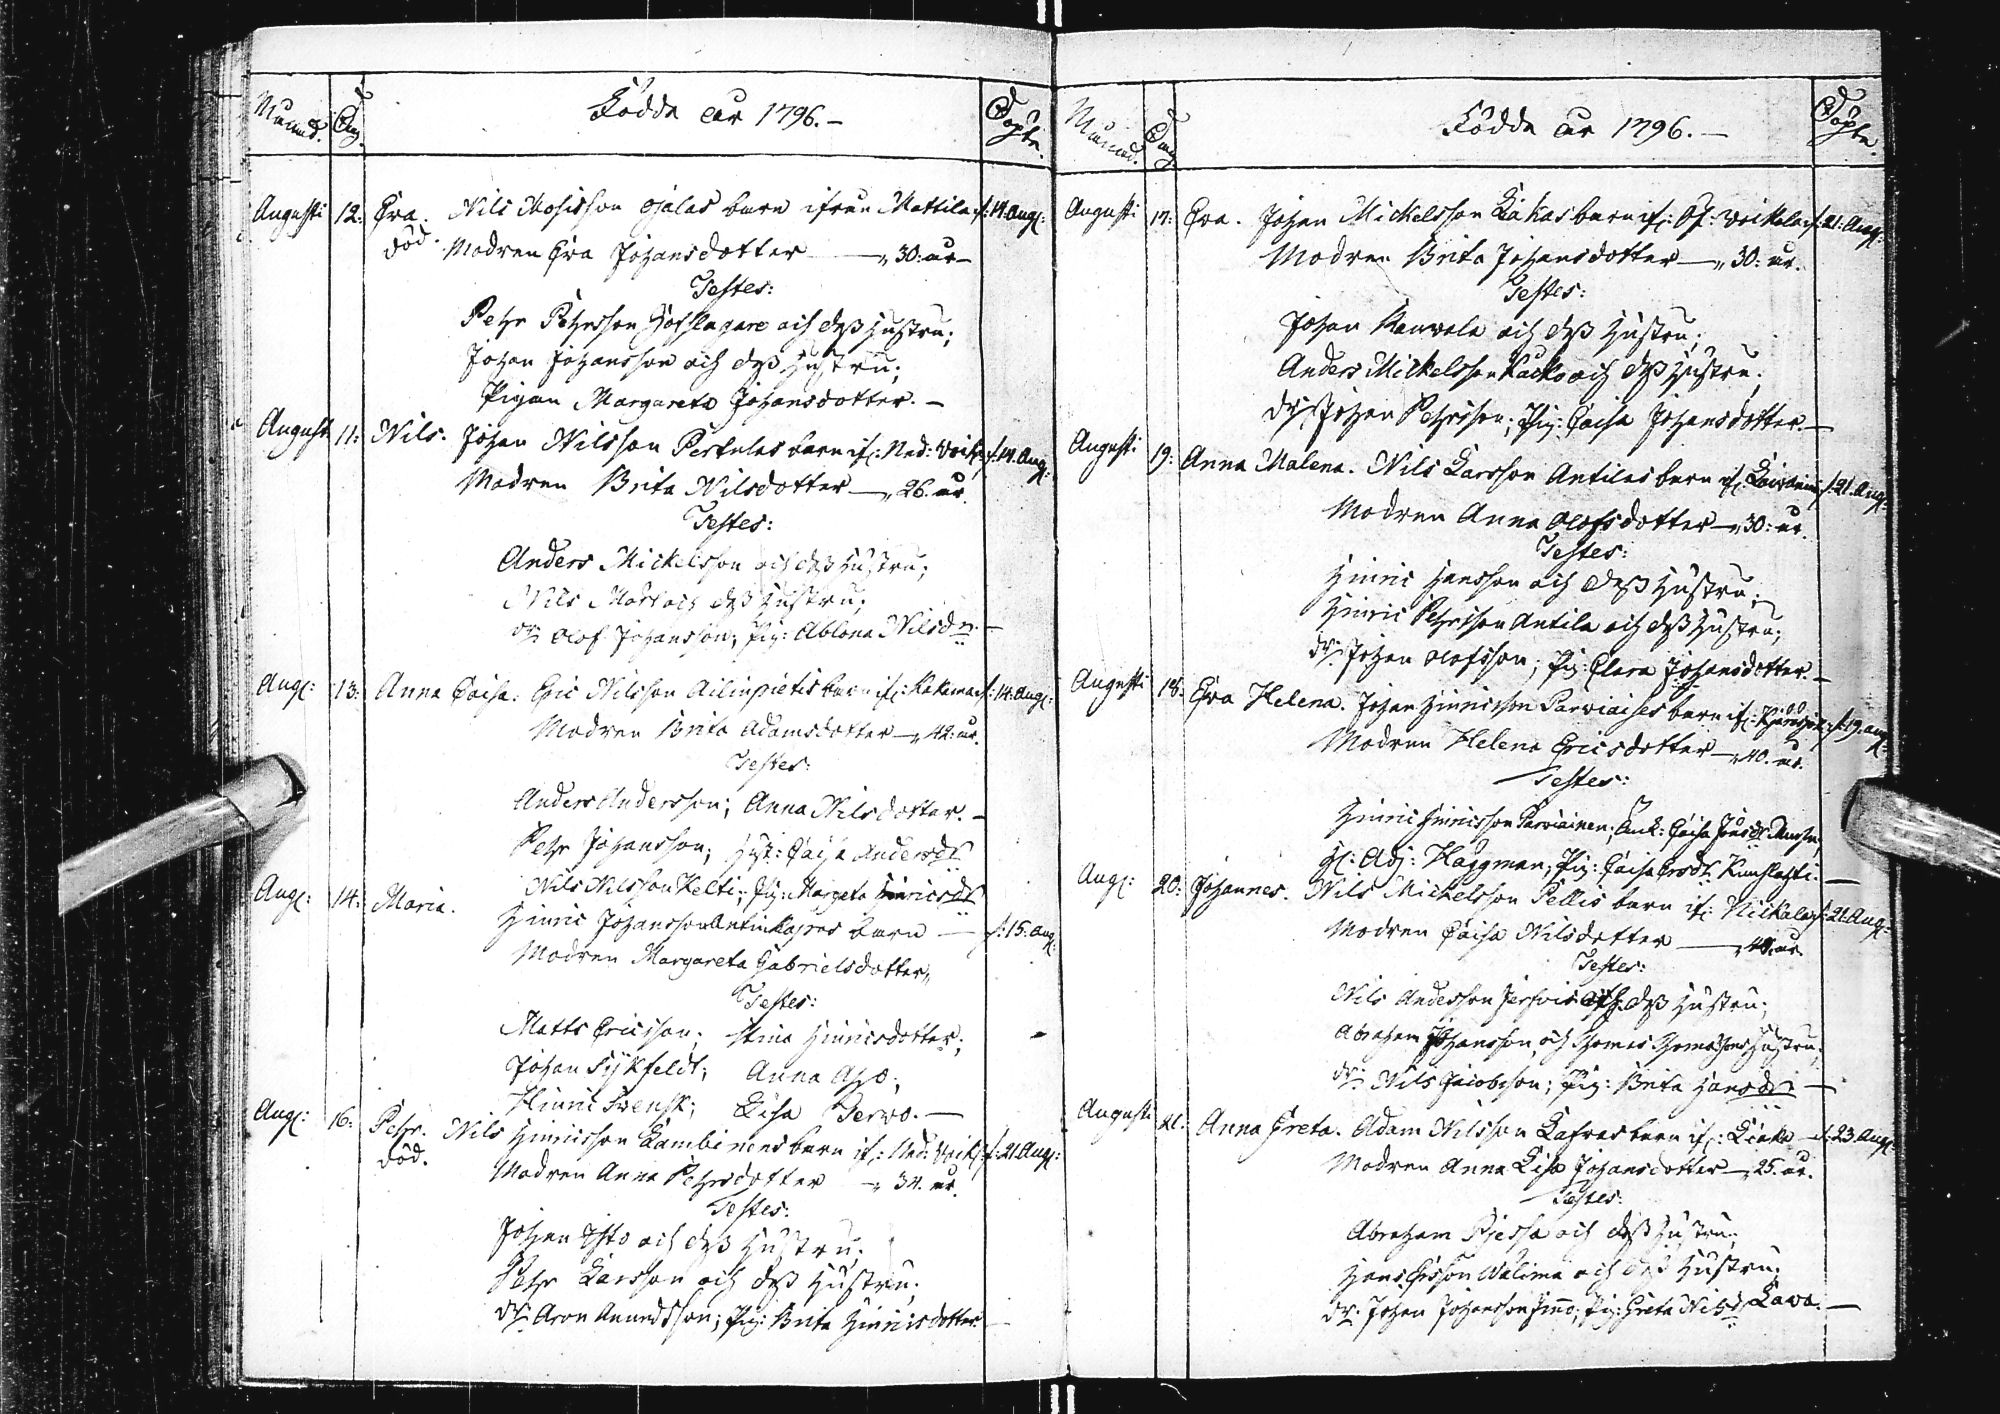 Månad. Dag. Födde år 1796. — Döpte.
Augusti 12: Eva. Nils Mosisson Ojalas barn ifrån Mattila d: 14. Aug:
död. Modren Eva Johansdotter — „ 30: år —
Testes:
Pehr Pehrsson Hofslagare och dess hustru;
Johan Johansson och dess hustru;
Pigan Margareta Johansdotter. —
August 11: Nils. Johan Nilsson Perkulas barn if: Ned: Veik: d: 14. Aug:
Modren Brita Nilsdotter — „ 26. år.
Testes:
Anders Mickelsson och dess hustru;
Nils och dess hustru;
dr: Olof Johansson; Pig: Ablona Nilsdr. —
Aug: 13: Anna Caisa. Eric Nilsson barn if: Kakama d: 14: Aug:
Modren Brita Adamsdotter — „ 42: år.
Testes:
Anders Andersson; Anna Nilsdotter. —
Pehr Johansson; Hust: Caisa Andersdr
Nils Nilsson Kelti; Pig: Margeta Hinricsdr
Aug: 14: Maria. Hinric Johansson barn — d: 15: Aug:
Modren Margareta Gabrielsdotter „
Testes:
Matts Ericsson; Stina Hinricsdotter;
Johan Sykfeldt; Anna Apo;
Hinric Svensk; Lisa Servo. —
Aug: 16: Pehr. Nils Hinricsson Lambinens barn if: Ned: Veik: d: 21. Aug:
död. Modren Anna Pehrsdotter — „ 34. år.
Testes:
Johan och dess hustru.
Pehr Larsson och dess hustru;
dr: Aron Anundsson; Pig: Brita Hinricsdotter. —
Månad. Dag. Födde år 1796. — Döpte.
Augusti 17: Eva. Johan Mickelsson Lakas barn if: Öf: Veikala d: 21: Aug:
Modren Brita Johansdotter — „ 30: år.
Testes:
Johan Kauvala och dess hustru;
Anders Mickelsson och dess hustru;
dr: Johan Pehrsson; Pig: Caisa Johansdotter. —
Augusti 19: Anna Malena. Nils Larsson Antilas barn if: d: 21. Aug:
Modren Anna Olofsdotter — „ 30: år.
Testes:
Hinric Hansson och dess hustru;
Hinric Pehrsson Antila och dess hustru;
dr: Johan Olofsson; Pig: Clara Johansdotter. —
Augusti 18: Eva Helena. Johan Hinricsson Parviaises barn if: d: 19. aug:
Modren Helena Ericsdotter — „ 40. år.
Testes:
Hinric Hinricsson Parviainen; Enk: Caisa
H: Adj: Häggman; Pig: Caisa Ersdr —
Aug: 20: Johannes. Nils Mickelsson Pellis barn if: Nickala d: 21. Aug:
Modren Caisa Nilsdotter — „ år.
Testes:
Nils Andersson och dess hustru;
Abraham Johansson, och Thomas Thomassons hustru;
dr: Nils Jacobsson; Pig: Brita Hansdr —
Augusti 21. Anna Greta. Adam Nilsson Lafvas barn if: — d: 23. Aug:
Modren Anna Lisa Johansdotter — „ 25. år.
Testes:
Abraham och dess hustru;
Hans Ersson Wälimä och dess hustru;
dr: Johan Johansson; Pig: Greta Nilsdr Lava. —